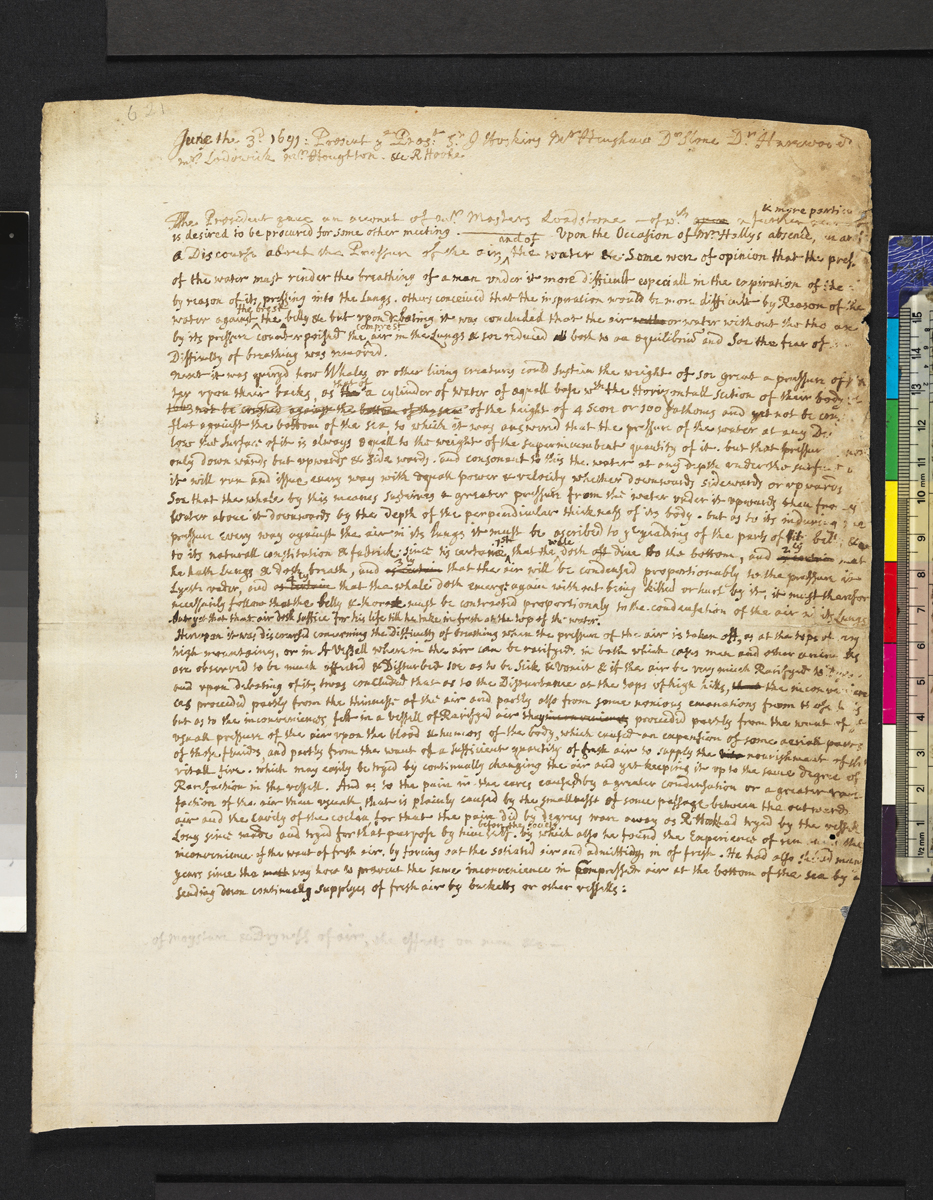 621
June the 3d 1691: Present ye Presdt Sr J Hoskins Mr Henshaw Dr Slone Dr Harwood
Mr Lodowick Mr Houghton. & R Hooke
& more particu
The President gave an account of Mr Masters Loadstone — of wch a further
is desired to be procured for some other meeting. Upon the Occasion of Mr Hallys absence,
and of
a Discourse about the Pressure of the air, the water &c: Some were of opinion that the press.
of the water must render the breathing of a man under it more difficult especiall in the expiration of the
by reason of its pressing into the Lungs. others conceived that the inspiration would be more difficult by Reason of the
the brest
water against the belly & but upon debating it was concluded that the air or water without the tho
comprest
by its pressure counterpoised the air in the Lungs & soe reduced both to an equilibriu and Soe the fear of
Difficulty of breathing was removed.
next it was queryd how Whales or other living creatures could sustain the weight of soe great a pressure of
that of
upon their backs, as a cylinder of water of equall base wth the Horizontall section of their body
not be crushed against the bottom of the sea of the height of 4 score or 100 fathoms and yet not be
flat against the bottom of the sea to which it was answered that the pressure of the water at any De
low the surface of it is always equall to the weight of the supernicumbent quantity of it. but that pressur
only downwards but upwards & side wards. and consonant to this the water at any depth under the surf
it will run and issue every way with equall power & velocity whether downwards sidewards or upwards
Soe that the whale by this means sustaines a greater pressure from the water under it upwards then fro
water above it downwards by the depth of the perpendicular thickness of its body. but as to its induring
pressure every way against the air in its Lungs it must be ascribed to ye yealding of the parts of its bel
1st whale 2ly
to its naturall constitution & fabrick: since tis certaine, that the doth dive to the bottom, and that
3ly
he hath Lungs & doth breath, and that the air will be condensed proportionably to the pressure
4ly
water, and that the whale doth emerge again without being killed or hurt by it, it must therefor
necessarily follow that the belly & thorax must be contracted proportionaly to the condensation of the air in its Lungs
and yet that that air doth suffice for his life till he take in fresh at the top of the water.
Hereupon it was discoursed concerning the difficulty of breathing when the pressure of the air is taken off, as at the tops of
high mountains, or in A Vessell wherein the air can be rarifyed, in both which cases men and other
are observed to be much affected & Disturbed soe as to be Sick & vomit & if the air be very much Rarifyed to
and upon debating of it, twas concluded that as to the Disturbance at the tops of high hills, the inconveni
ces proceeded partly from the thinness of the air and partly also from some noxious emanations from those
but as to the inconveniences felt in a vessell of Rarifyed air they proceeded partly from the want of
usuall pressure of the air upon the blood & humors of the body, which caused an expansion of some aeriall parts
of those fluides, and partly from the want of a sufficient quantity of fresh air to supply the nourishment of the
vitall fire. which may easily be tryd by continually changing the air and yet keeping it up to the same degree of
Rarifaction in the vessell. And as to the paine in the eares caused by a greater condensation or a greater rare
faction of the air then usuall, that is plainly caused by the smallness of some passage between the outward
air and the cavity of the coclea for that the pain did by degrees wear away as R Hook had tryed by the vessell
before the Society
Long since made and tryed for that purpose by himself. by which also he found the Experience of the
inconvenience of the want of fresh air. by forcing out the satiated air and admitting in of fresh. He had also man
years since the way how to prevent the same inconvenience in compressed air at the bottom of the sea by
sending down continually supplyes of fresh air by bucketts or other vessells:
of moysture & Dryness of air, the effects on men &c —